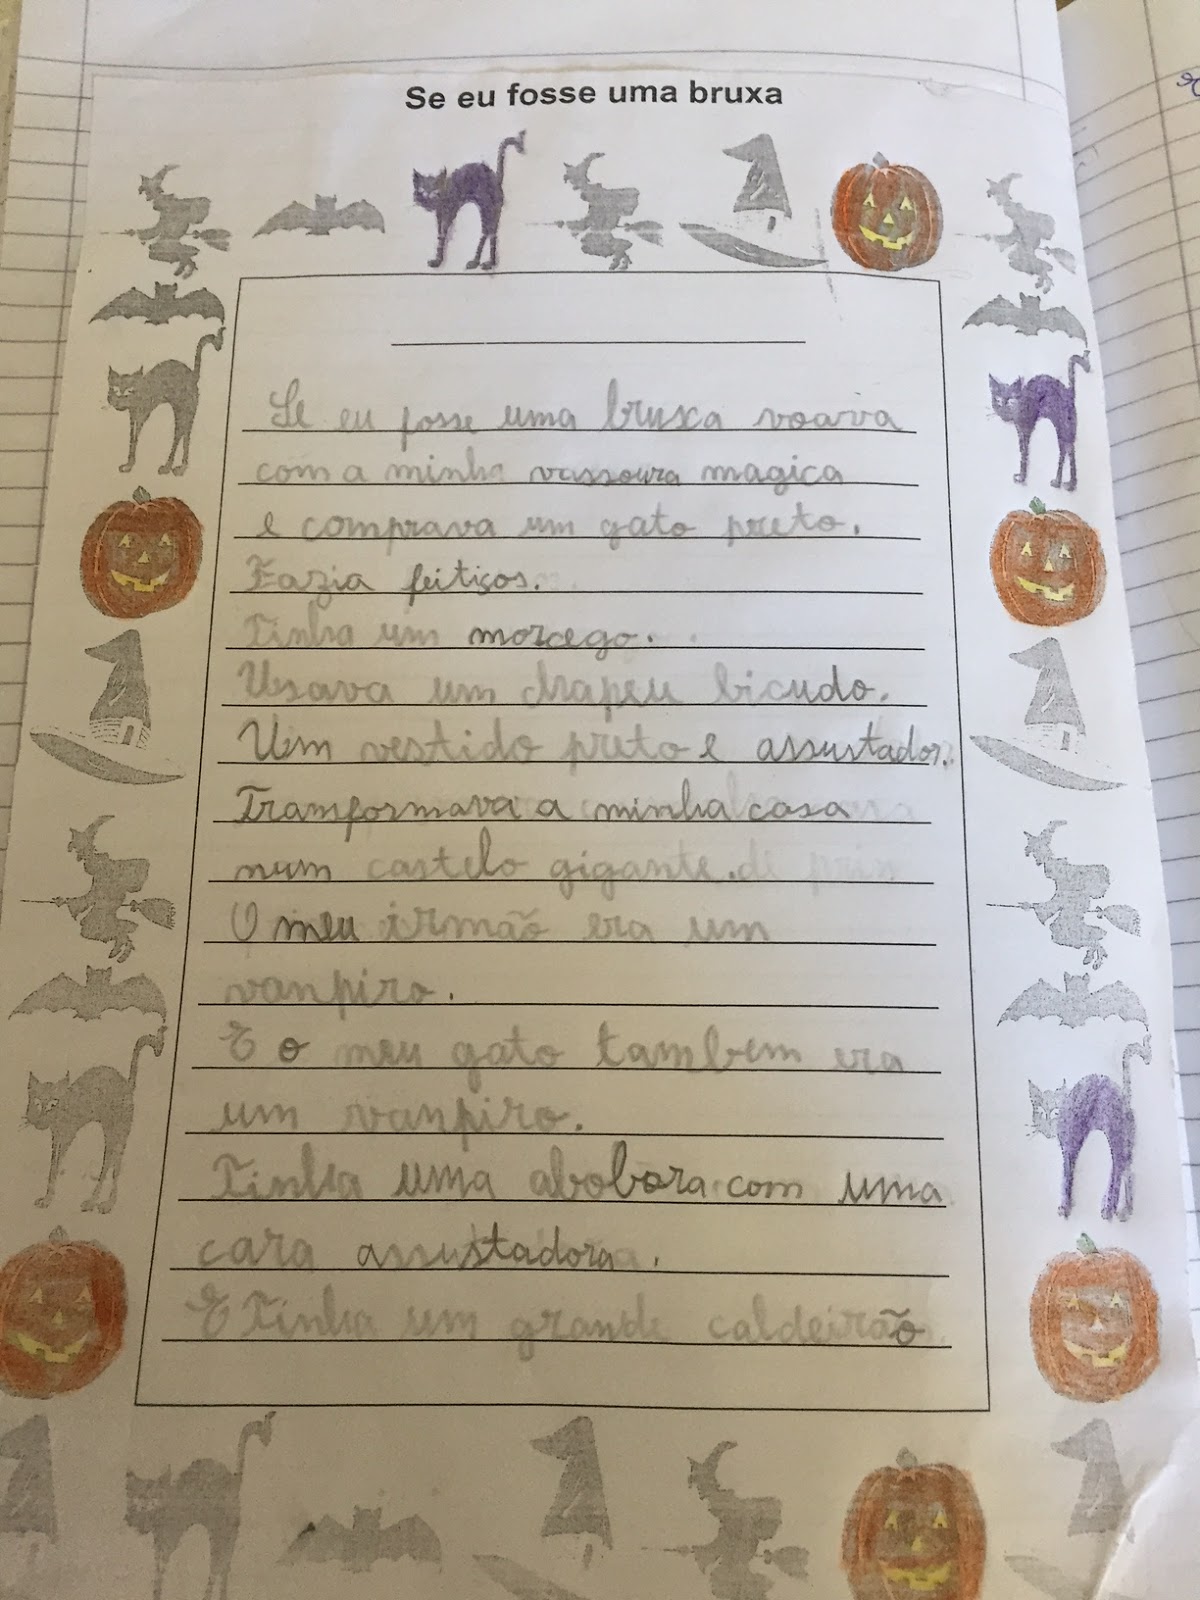 Se eu fosse uma bruxa
Se eu fosse uma bruxa voava
com a minha vassoura magica
e comprava um gato preto.
Fazia feitiços.
Tinha um morcego.
Usava um chapeu bicudo.
Um vestido preto e assustador.
Tranformava a minha casa
num castelo gigante.
O meu irmão era um
vanpiro.
E o meu gato tambem era
um vanpiro.
Tinha uma abobora com uma
cara assustadora.
E Tinha um grande caldeirão